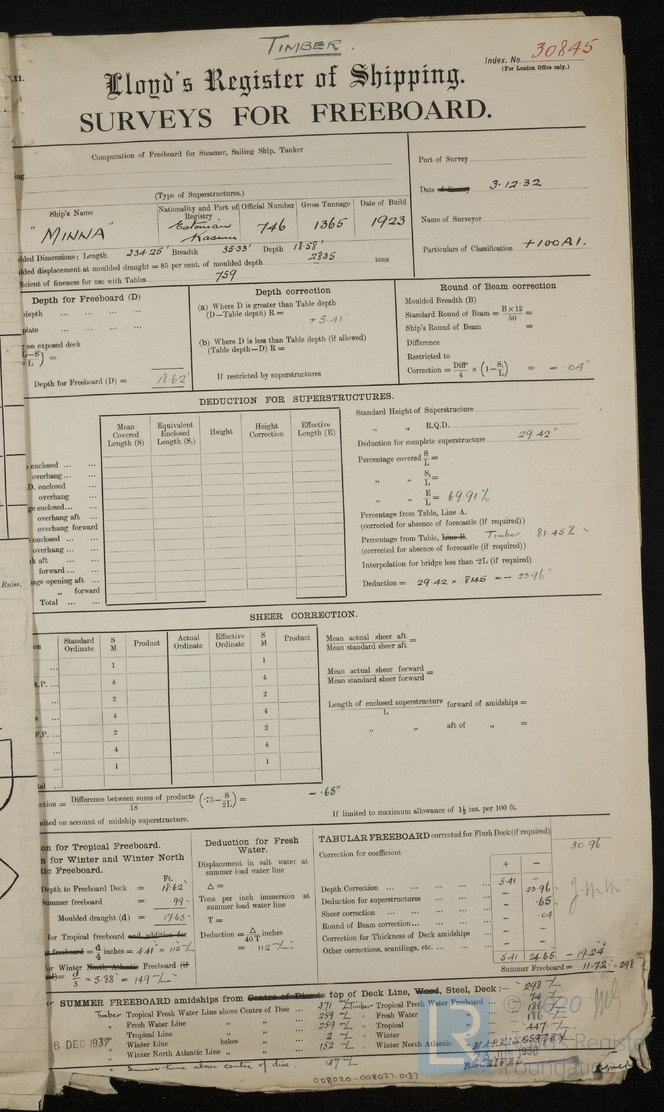 TIMBER.
Index. No. 30845
(For London Office only.)
Lloyd's Register of Shipping.
SURVEYS FOR FREEBOARD.
Computation of Freeboard for Steamer, Sailing Ship, Tanker
(Type of Superstructures.)
Port of Survey
Date of Survey 3.12.32
Name of Surveyor
Particulars of Classification +100A1.
Ship's Name
Nationality and Port of Registry
Official Number
Gross Tonnage
Date of Build
"MINNA"
Estonian
746
1365
1923
Dimensions: Length 234.25' Breadth 35.33' Depth 18.58'
displacement at moulded draught = 85 per cent. of moulded depth 2835 tons
of fineness for use with Tables .759
Depth for Freeboard (D)
depth ... ... ...
on exposed deck
Depth for Freeboard (D) = 18.62'
Depth correction
(a) Where D is greater than Table depth
(D—Table depth) R =
+5.41
(b) Where D is less than Table depth (if allowed)
(Table depth—D) R =
If restricted by superstructures
Round of Beam correction
Moulded Breadth (B)
Standard Round of Beam = B×12/50 =
Ship's Round of Beam =
Difference
Restricted to
Correction = Diffce/4 × (1−S₁/L) = - .04"
DEDUCTION FOR SUPERSTRUCTURES.
Mean Covered Length (S)
Equivalent Enclosed Length (S₁)
Height
Height Correction
Effective Length (E)
enclosed ... ...
overhang ... ...
enclosed
overhang
enclosed... ...
overhang aft ...
overhang forward
enclosed ... ...
overhang ... ...
aft ... ...
forward ... ...
opening aft ...
" forward
Total ... ...
Standard Height of Superstructure
" " R.Q.D.
Deduction for complete superstructure 29.42"
Percentage covered S/L =
" " S₁/L =
" " E/L = 69.91%
Percentage from Table, Line A.
(corrected for absence of forecastle (if required))
Percentage from Table, Line B. Timber 81.45%
(corrected for absence of forecastle (if required))
Interpolation for bridge less than ·2L (if required)
Deduction = 29.42 × .8145 = - 23.96"
SHEER CORRECTION.
Standard Ordinate
S M
Product
Actual Ordinate
Effective Ordinate
S M
Product
1 1
4 4
2 2
4 4
2 2
4 4
1 1
Mean actual sheer aft / Mean standard sheer aft =
Mean actual sheer forward / Mean standard sheer forward =
Length of enclosed superstructure / L forward of amidships =
" " aft of " =
Difference between sums of products / 18 (·75−S/2L) = - .65"
on account of midship superstructure.
If limited to maximum allowance of 1½ ins. per 100 ft.
for Tropical Freeboard.
for Winter and Winter North
Freeboard.
Ft.
Depth to Freeboard Deck = 18.62
Summer freeboard = .99
Moulded draught (d) = 17.63
for Tropical freeboard and addition for
freeboard = d/4 inches = 4.41 = 112
Winter North Atlantic Freeboard (if
= d/3 = 5.88 = 149
Deduction for Fresh Water.
Displacement in salt water at summer load water line
Δ =
Tons per inch immersion at summer load water line
T =
Deduction = Δ/40T inches
= 112
TABULAR FREEBOARD corrected for Flush Deck (if required) 30.96
Correction for coefficient
+ −
Depth Correction ... ... ... 5.41 −
Deduction for superstructures ... ... − 23.96
Sheer correction ... ... ... − .65
Round of Beam correction... ... − .04
Correction for Thickness of Deck amidships ... − −
Other corrections, scantlings, etc. ... ...
5.41 24.65 −19.24
Summer Freeboard = 11.72 = 298
SUMMER FREEBOARD amidships from Centre of Disc to top of Deck Line, Wood, Steel, Deck:— 298
Timber Tropical Fresh Water Line above Centre of Disc ... 371
Fresh Water Line " " 259
Tropical Line " " 259
Winter Line below " 2
Winter North Atlantic Line " " 152
Summer line above centre of disc. 147
Timber Tropical Fresh Water Freeboard ... 74
Fresh Water " 186
Tropical " 186
Winter " 447
Winter North Atlantic "
6 DEC 1932
RECEIVED
© 2020
LR
Foundation
008020-008027-0137